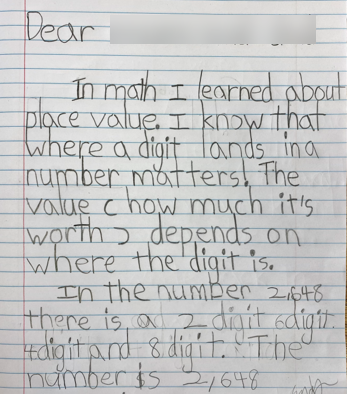 Dear
In math I learned about
place value. I know that
where a digit lands in a
number matters! The
value ( how much it's
worth ) depends on
where the digit is.
In the number 2,648
there is a 2 digit 6 digit
4 digit and 8 digit. The
number is 2,648